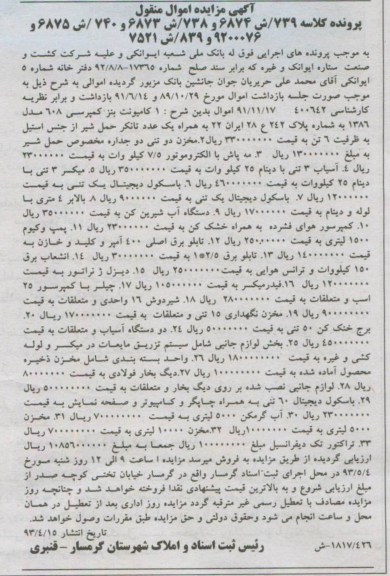 آگهی مزایده اموال منقول
پرونده کلاسه ۷۳۹/ش ۶۸۷۴ و ۷۳۸/ش ۶۸۷۳ و ۷۴۰ /ش ۶۸۷۵ و
۹۲۰۰۰۷۶ و ۸۳۹/ش ۷۵۲۱
به موجب پرونده های اجرایی فوق له بانک ملی شعبه ایوانکی و علیه شرکت کشت و
صنعت ستاره ایوانک و غیره که برابر سند صلح شماره ۱۷۳۶۵-۹۲/۸/۸ دفتر خانه شماره ۵
ایوانکی آقای محمد علی حریریان جوان جانشین بانک مزبور گردیده اموالی به شرح ذیل به
موجب صورت جلسه بازداشت اموال مورخ ۸۹/۱۰/۲۹ و ۹۱/۶/۱۴ بازداشت و برابر نظریه
کارشناسی ۴۰۰۶۴۲ ۹۱/۱۱/۱۷ اموال بدین شرح : ۱ کامیونت بنز کمپرسی ۶۰۸ مدل
۱۳۸۶ به شماره پلاک ۲۴۲ ع ۲۸ ایران ۲۲ به همراه یک عدد تانکر حمل شیر از جنس استیل
به ظرفیت ۶ تن به قیمت ۳۳۰۰۰۰۰۰۰ ریال۲.مخزن دو تنی دو جداره مخصوص حمل شیر
به مبلغ ۱۳۰۰۰۰۰۰۰ ریال ۳. مه پاش با الکتروموتور ۷/۵ کیلو وات به قیمت ۲۳۰۰۰۰۰۰
ریال ۴. آسیاب ۳ تنی با دینام ۲۵ کیلو وات به قیمت ۳۵۰۰۰۰۰۰ ریال ۵. میکسر ۳ تنی با
دینام ۲۵ کیلووات به قیمت ۴۶۰۰۰۰۰۰ ریال ۶. باسکول دیجیتال یک تنی به قیمت
۱۲۰۰۰۰۰۰ ریال ۷. باسکول دیجیتال یک تنی به قیمت ۹۰۰۰۰۰۰ ریال ۸. بالابر ۴ متری با
لوله و دینام به قیمت ۱۷۰۰۰۰۰۰ ریال ۹. دستگاه آب شیرین کن به قیمت ۳۵۰۰۰۰۰۰ ریال
۱۰. کمپرسور هوای فشرده به همراه خشک کن به قیمت ۲۳۰۰۰۰۰۰ ریال ۱۱. پمپ وکیوم
۱۵۰۰ لیتری به قیمت ۲۵۰۰۰۰۰۰ ریال ۱۲. تابلو برق اصلی ۴۰۰ آمپر و کلید و خازن به
قیمت ۱۴۰۰۰۰۰۰۰ ریال ۱۳. تابلو برق ۱/۵*۲ به قیمت ۳۰۰۰۰۰۰۰ ریال ۱۴. انشعاب برق
۱۵۰ کیلووات و ترانس هوایی به قیمت ۲۵۰۰۰۰۰۰۰ریال ۱۵. دیزل ژنراتور به قیمت
۱۲۰۰۰۰۰۰۰ ریال ۱۶.فیدرمیکسر به قیمت ۱۰۵۰۰۰۰۰۰ ریال ۱۷. چیلر با کمپرسور ۲۵
اسب و متعلقات به قیمت ۲۸۰۰۰۰۰۰۰ ریال ۱۸. شیردوش ۱۶ واحدی و متعلقات به قیمت
۹۰۰۰۰۰۰۰۰ ریال ۱۹. مخزن نگهداری ۱۵ تنی و متعلقات به قیمت ۱۷۰۰۰۰۰۰۰ ریال ۲۰.
برج خنک کن ۵۰ تنی به قیمت ۵۰۰۰۰۰۰۰ ریال ۲۴. دو دستگاه آسیاب و متعلقات به قیمت
۴۵۰۰۰۰۰۰ ریال ۲۵. بخش لوازم جانبی شامل سیستم تزریق مایعات در میکسر و لوله
کشی و غیره به قیمت ۱۸۰۰۰۰۰۰۰ ریال ۲۶. واحد بسته بندی شامل مخزن ذخیره
محصول آماده شده به قیمت ۱۰۰۰۰۰۰۰۰ ریال ۲۷.دیگ بخار فولادی به قیمت ۸۰۰۰۰۰۰۰
ریال ۲۸. لوازم جانبی نصب شده بر روی دیگ بخار و متعلقات به قیمت ۵۰۰۰۰۰۰۰ ریال
۲۹. باسکول دیجیتال ۶۰ تنی به همراه چاپگر و کامپیوتر و صفحه نمایش به قیمت
۲۳۰۰۰۰۰۰۰ ریال ۳۰. آب گرمکن ۵۰۰۰ لیتری به قیمت ۷۰۰۰۰۰۰۰ ریال ۳۱. مخزن
۵۰۰۰ لیتری به قیمت ۱۰۰۰۰۰۰۰ریال ۳۲ مخزن ۱۰۰۰۰ لیتری به قیمت ۷۰۰۰۰۰۰۰ ریال
۳۳. تراکتور تک دیفرانسیل مبلغ ۱۰۰۰۰۰۰۰۰ ریال جمعا به مبلغ ۱۰۸۵۶۰۰۰۰۰۰ ریال
ارزیابی گردیده از طریق مزایده به فروش میرسد مزایده از ساعت ۹ الی ۱۲ روز شنبه مورخ
۹۳/۵/۴ در محل اجرای ثبت اسناد گرمسار واقع در گرمسار خیابان تختی کوچه صدر از
مبلغ ارزیابی شروع و به بالاترین قیمت پیشنهادی نقدا فروخته خواهد شد و چنانچه روز
مزایده مصادف با تعطیل رسمی غیر مترقبه گردد مزایده روز اداری بعد از تعطیل در همان
محل و ساعت انجام می شود وحقوق دولتی و حق مزایده طبق مقررات وصول خواهد شد.
تاریخ انتشار ۹۳/۴/۱۵
رئیس ثبت اسناد و املاک شهرستان گرمسار - قنبری
۱۸۱۷/۴۲۶-ش